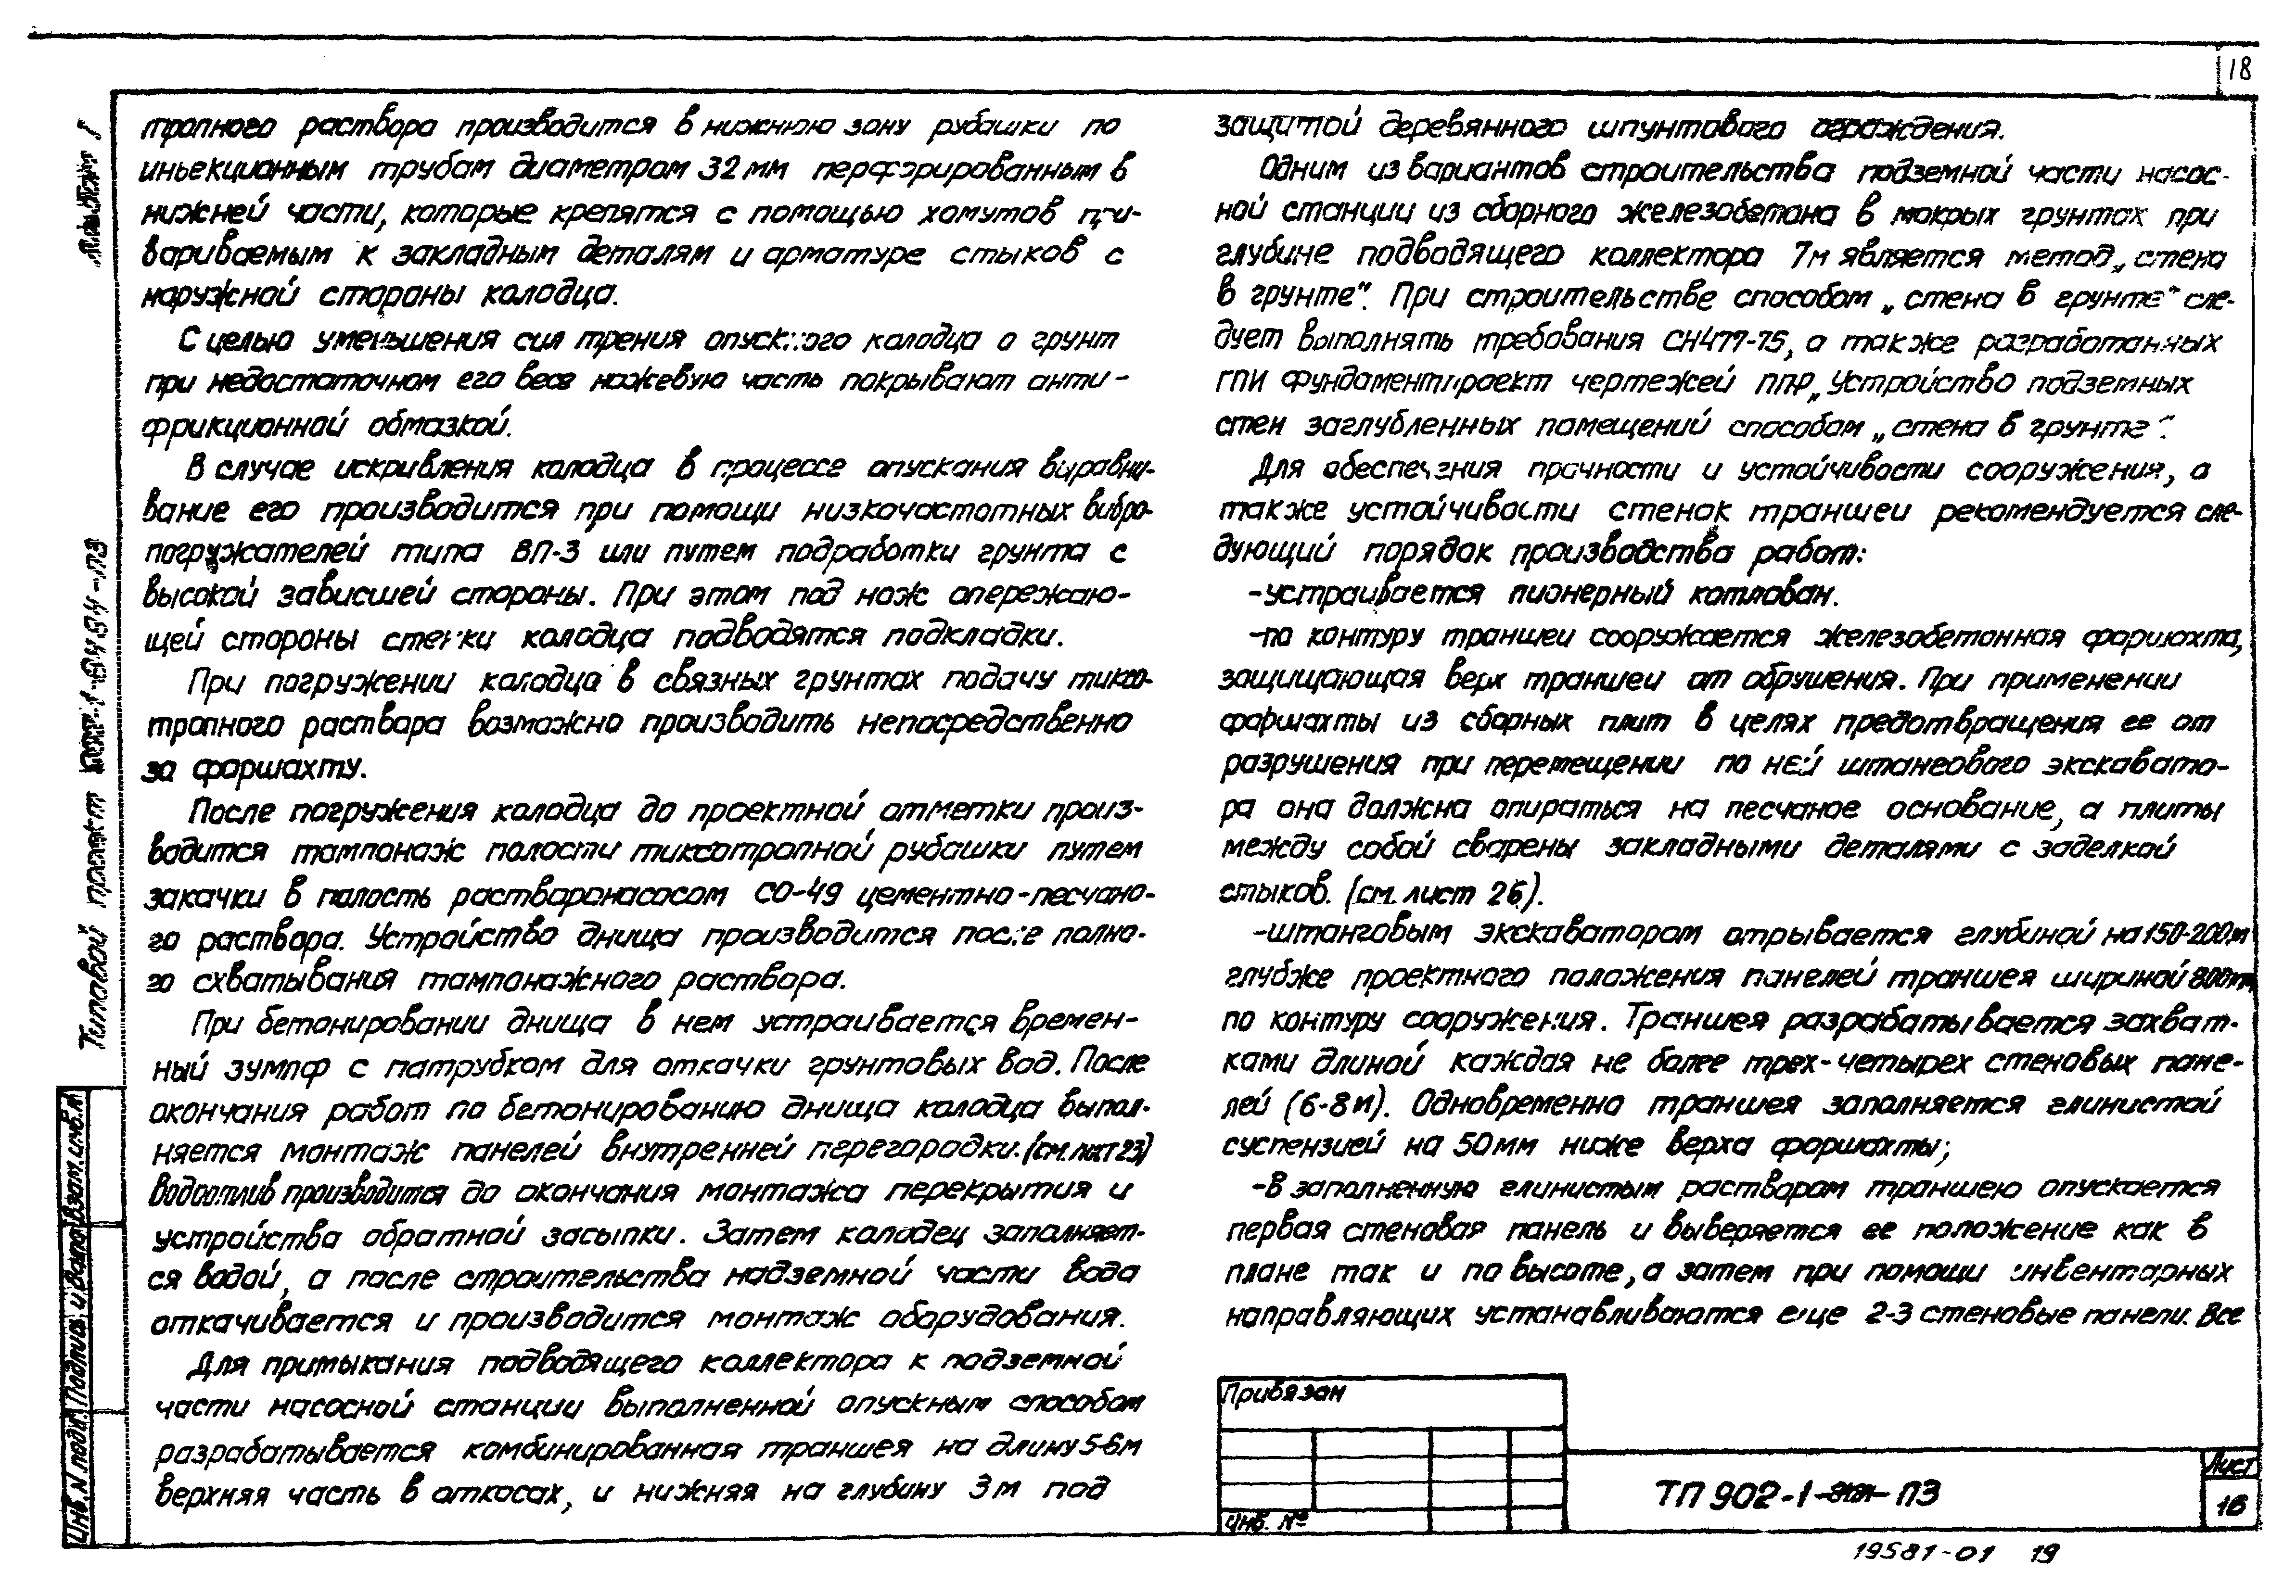 18
тропного раствора производится в нижнюю зону рубашки по
иньекционным трубам диаметром 32 мм перфорированным в
нижней части, которые крепятся с помощью хомутов при-
вариваемым к закладным деталям и арматуре стыков с
наружной стороны колодца.
С целью уменьшения сил трения опускного колодца о грунт
при недостаточном его весе ножевую часть покрывают анти-
фрикционной обмазкой.
В случае искривления колодца в процессе опускания выравни-
вание его производится при помощи низкочастотных вибро-
погружателей типа ВП-3 или путем подработки грунта с
высокой зависшей стороны. При этом под нож опережаю-
щей стороны стенки колодца подводятся подкладки.
При погружении колодца в связных грунтах подачу тиксо-
тропного раствора возможно производить непосредственно
за форшахту.
После погружения колодца до проектной отметки произ-
водится тампонаж полости тиксотропной рубашки путем
закачки в полость растворонасосом СО-49 цементно-песчано-
го раствора. Устройство днища производится после полно-
го схватывания тампонажного раствора.
При бетонировании днища в нем устраивается времен-
ный зумпф с патрубком для откачки грунтовых вод. После
окончания работ по бетонированию днища колодца выпол-
няется монтаж панелей внутренней перегородки. (см. лист 23)
Водоотлив производится до окончания монтажа перекрытия и
устройства обратной засыпки. Затем колодец заполняет-
ся водой, а после строительства надземной части вода
откачивается и производится монтаж оборудования.
Для примыкания подводящего коллектора к подземной
части насосной станции выполненной опускным способом
разрабатывается комбинированная траншея на длину 5-6м
верхняя часть в откосах, и нижняя на глубину 3м под
защитой деревянного шпунтового ограждения.
Одним из вариантов строительства подземной части насос-
ной станции из сборного железобетона в мокрых грунтах при
глубине подводящего коллектора 7м является метод „стена
в грунте". При строительстве способом „стена в грунте" сле-
дует выполнять требования СН477-75, а также разработанных
ГПИ Фундаментпроект чертежей ППР „Устройство подземных
стен заглубленных помещений способом „стена в грунте".
Для обеспечения прочности и устойчивости сооружения, а
также устойчивости стенок траншеи рекомендуется сле-
дующий порядок производства работ:
-устраивается пионерный котлован.
-по контуру траншеи сооружается железобетонная форшахта,
защищающая верх траншеи от обрушения. При применении
форшахты из сборных плит в целях предотвращения ее от
разрушения при перемещении по ней штангового экскавато-
ра она должна опираться на песчаное основание, а плиты
между собой сварены закладными деталями с заделкой
стыков. (см. лист 26).
-штанговым экскаватором отрывается глубиной на 150-200м
глубже проектного положения панелей траншея шириной 800мм
по контуру сооружения. Траншея разрабатывается захват-
ками длиной каждая не более трех-четырех стеновых пане-
лей (6-8м). Одновременно траншея заполняется глинистой
суспензией на 50мм ниже верха форшахты;
-В заполненную глинистым раствором траншею опускается
первая стеновая панель и выверяется ее положение как в
плане так и по высоте, а затем при помощи инвентарных
направляющих устанавливаются еще 2-3 стеновые панели. Все
Альбом I
Типовой проект
Инв. N подл. Подпись и дата Взам. инв. N
Привязан
Инв. №
ТП 902-1- ПЗ
Лист
16
19581-01 19